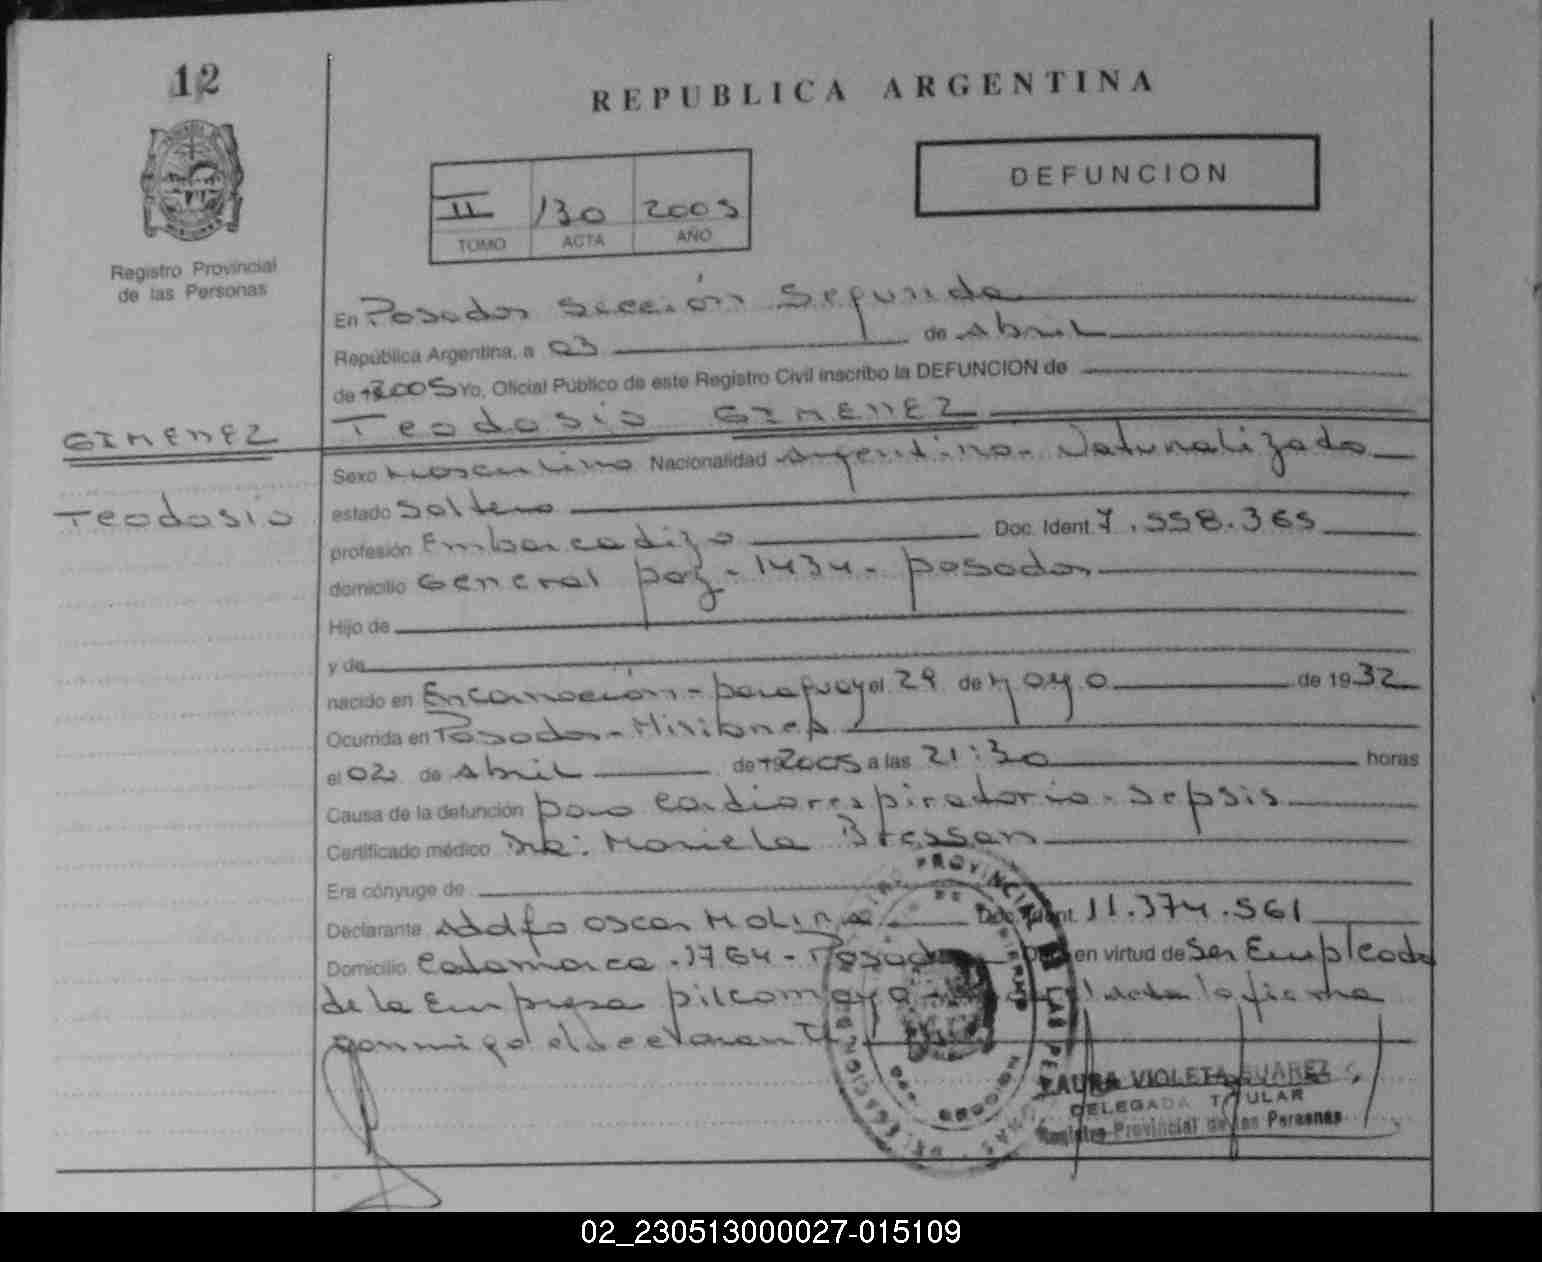 12
REPUBLICA ARGENTINA
DEFUNCION
II 130 2005
TOMO ACTA AÑO
Registro Provincial
de las Personas
En Posadas Sección Segunda
República Argentina, a 03 de Abril
de 2005 Yo, Oficial Público de este Registro Civil inscribo la DEFUNCION de
Teodosio GIMENEZ
GIMENEZ
Teodosio
Sexo Masculino Nacionalidad Argentino - Naturalizado
estado Soltero
profesión Embarcadizo Doc. Ident. 7.558.365
domicilio General paz - 1434 - posadas
Hijo de
y de
nacido en Encarnación - paraguay el 29 de Mayo de 1932
Ocurrida en Posadas - Misiones
el 02 de Abril de 2005 a las 21:30 horas
Causa de la defunción paro cardiorespiratorio - sepsis
Certificado médico Dra: Mariela Bressan
Era cónyuge de
Declarante Adolfo Oscar Molina Doc. Ident. 11.374.561
Domicilio Catamarca - 1764 - Posadas en virtud de Ser Empleado
de la Empresa pilcomayo la firma
conmigo el declarante
LAURA VIOLETA SUAREZ
DELEGADA TITULAR
Registro Provincial de las Personas
02_230513000027-015109